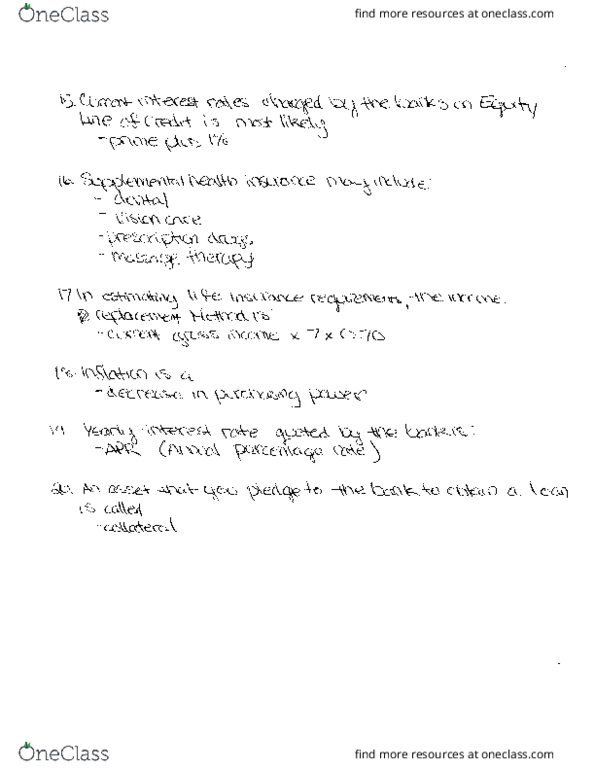 OneClass
find more resources at oneclass.com
15. Current interest rates charged by the banks on Equity
Line of Credit is most likely
- prime plus 1%
16. Supplemental health insurance may include:
- dental
- Vision care
- prescription drugs
- massage therapy
17 In estimating life insurance requirements, the income
replacement Method is
- current gross income x 7 x
18. Inflation is a
- decrease in purchasing power
19. Yearly interest rate quoted by the bank is:
- APR (Annual percentage rate)
20. An asset that you pledge to the bank to obtain a loan
is called
- collateral
OneClass
find more resources at oneclass.com